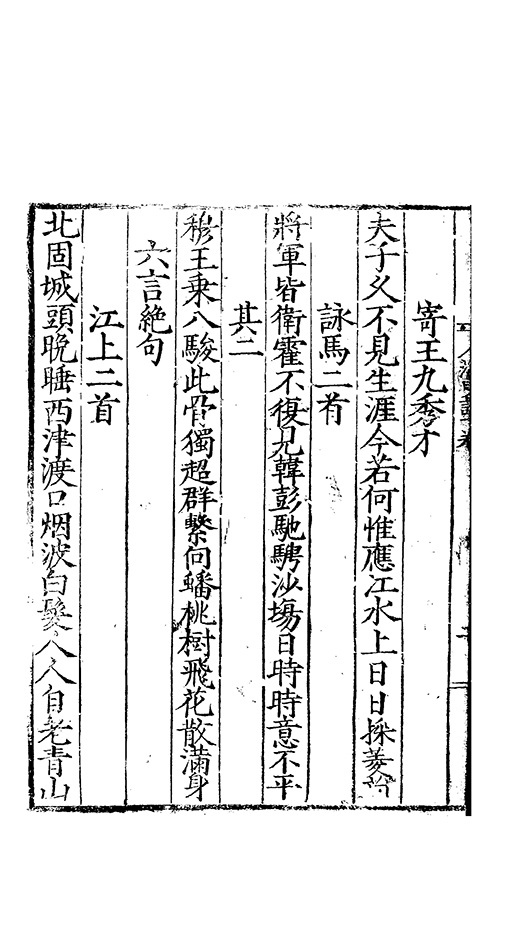 寄王九秀才
夫子久不見生涯今若何惟應江水上日日採菱
詠馬二首
將軍皆衛霍不復兄韓彭馳騁沙塲日時時意不平
其二
穆王乗八駿此骨獨超群繫向蟠桃樹飛花散滿身
六言絶句
江上二首
北固城頭晩睡西津渡口烟波白髮人人自老青山